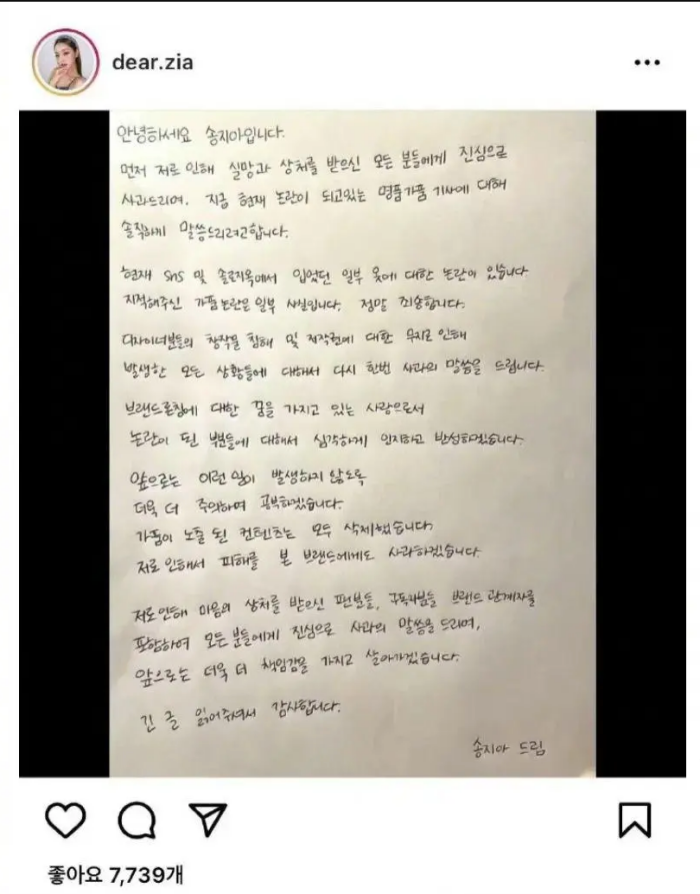 dear.zia
안녕하세요 송지아입니다.
먼저 저로 인해 실망과 상처를 받으신 모든 분들에게 진심으로
사과드리며, 지금 현재 논란이 되고있는 명품가품 기사에 대해
솔직하게 말씀드리려고합니다.
현재 SNS 및 솔로지옥에서 입었던 일부 옷에 대한 논란이 있습니다
지적해주신 가품논란은 일부 사실입니다. 정말 죄송합니다.
디자이너분들의 창작물 침해 및 저작권에 대한 무지로 인해
발생한 모든 상황들에 대해서 다시 한번 사과의 말씀을 드립니다.
브랜드론칭에 대한 꿈을 가지고 있는 사람으로서
논란이 된 부분들에 대해서 심각하게 인지하고 반성하겠습니다.
앞으로는 이런 일이 발생하지 않도록
더욱 더 주의하며 공부하겠습니다.
가품이 노출 된 컨텐츠는 모두 삭제했습니다.
저로 인해서 피해를 본 브랜드에게도 사과하겠습니다.
저로인해 마음의 상처를 받으신 팬분들, 구독자분들 브랜드 관계자를
포함하여 모든분들에게 진심으로 사과의 말씀을 드리며,
앞으로는 더욱 더 책임감을 가지고 살아가겠습니다.
긴 글 읽어주셔서 감사합니다.
송지아 드림
좋아요 7,739개